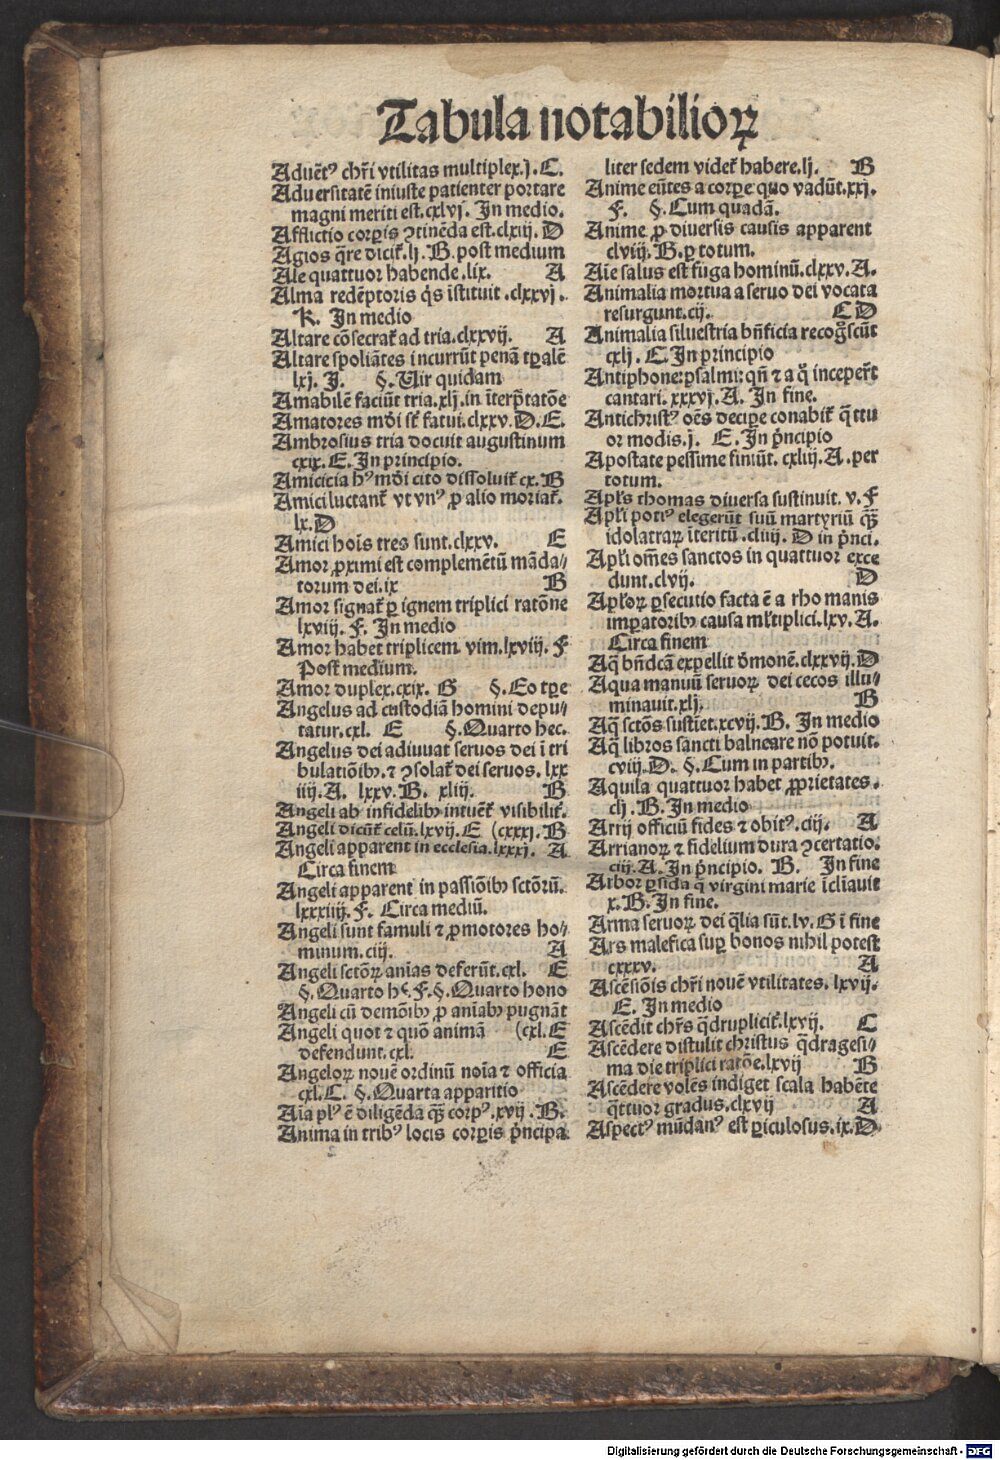 Tabula notabilioꝝ
Aduētꝰ chr̄i vtilitas multiplex.j. C.
Aduersitatē iniuste patienter portare
magni meriti est.cxlvj. In medio.
Afflictio corꝑis ꝯtinēda est.clxiij. D
Agios q̄re dicit̄.lj. B. post medium
Ale quattuor habende.lix. A
Alma redēptoris q̇s īstituit.clxxvj.
K. In medio
Altare cōsecrat̄ ad tria.clxxvij. A
Altare spoliātes incurrūt penā tꝑalē
lxj. J. §. Uir quidam
Amabilē faciūt tria.xlj.in īterp̄tatōe
Amatores mūdi st̄ fatui.clxxv. D. E.
Ambrosius tria docuit augustinum
cxix. E. In principio.
Amicicia hꝰ mūdi cito dissoluit̄ cx. B
Amici luctant̄ vt vnꝰ ꝓ alio moriat̄.
lx. D
Amici hoīs tres sunt.clxxv. E
Amor ꝓximi est complemētū māda⸗
torum dei.ix B
Amor signat̄ ꝑ ignem triplici ratōne
lxviij. F. In medio
Amor habet triplicem vim.lxviij. F
Post medium.
Amor duplex.cxix. G §. Eo tꝑe
Angelus ad custodiā homini depu⸗
tatur.cxl. E §. Quarto hec.
Angelus dei adiuuat seruos dei ī tri
bulatiōibꝫ ⁊ ꝯsolat̄ dei seruos. lxx
iiij. A. lxxv. B. xliij. B
Angeli ab infidelibꝫ intuēt̄ visibilit̄.
Angeli dicūt̄ celū.lxvij. E (cxxxj. B
Angeli apparent in ecclesia.lxxxj. A
Circa finem
Angeli apparent in passiōibꝫ sctōrū.
lxxxiiij. F. Circa mediū.
Angeli sunt famuli ⁊ ꝓmotores ho⸗
minum.ciij. A
Angeli sctōꝝ aīas deferūt.cxl. E
§. Quarto hꝰ. F. §. Quarto hono
Angeli cū demōibꝫ ꝓ aīabꝫ pugnāt
Angeli quot ⁊ quō animā (cxl. E
defendunt.cxl. E
Angeloꝝ nouē ordinū noīa ⁊ officia
cxl. C. §. Quarta apparitio
Aīa plꝰ ē diligēda qꝫ̄ corpꝰ.xvij. B.
Anima in tribꝰ locis corꝑis p̄ncipa
liter sedem videt̄ habere.lj. B
Anime eūtes a corꝑe quo vadūt.xxj.
F. §. Cum quadā.
Anime ꝓ diuersis causis apparent
clviij. B. ꝑ totum.
Aīe salus est fuga hominū.clxxv. A.
Animalia mortua a seruo dei vocata
resurgunt.cij. C D
Animalia siluestria bn̄ficia recoḡscūt
cxlj. C. In principio
Antiphone:psalmi:qn̄ ⁊ a q̊ incepert̄
cantari. xxxvj. A. In fine.
Antichristꝰ oēs decipe conabit̄ q̄ttu
or modis.j. E. In p̄ncipio
Apostate pessime finiūt. cxliij. A. per
totum.
Apl̄s thomas diuersa sustinuit. v. F
Apl̄i potiꝰ elegerūt suū martyriū qꝫ̄
idolatraꝝ īteritū.cliiij. D in p̄nci.
Apl̄i om̄es sanctos in quattuor exce
dunt.clvij. D
Apl̄oꝝ ꝑsecutio facta ē a rho manis
imꝑatoribꝫ causa ml̄tiplici.lxv. A.
Circa finem
Aq̄ bn̄dcā expellit d̓monē.clxxvij. D
Aqua manuū seruoꝝ dei cecos illu⸗
minauit.xlj. B
Aq̄ sctōs sustīet.xcvij. B. In medio
Aq̄ libros sancti balneare nō potuit.
cviij. D. §. Cum in partibꝫ.
Aquila quattuor habet ꝓprietates.
clj. B. In medio
Arrij officiū fides ⁊ obitꝰ.cij. A
Arrianoꝝ ⁊ fidelium dura ꝯcertatio.
ciij. A. In p̄ncipio. B. In fine
Arbor ꝑsida q̄ virgini marie īclīauit
x. B. In fine.
Arma seruoꝝ dei q̄lia sūt.lv. G ī fine
Ars malefica suꝑ bonos nihil potest
cxxxv. A
Ascēsiōis chr̄i nouē vtilitates. lxvij.
E. In medio
Ascēdit chr̄s q̄druplicit̄.lxvij. C
Ascēdere distulit christus q̄dragesi⸗
ma die triplici ratōe.lxvij B
Ascēdere volēs indiget scala habēte
q̄ttuor gradus.clxvij A
Aspectꝰ mūdanꝰ est ꝑiculosus.ix. D.
Digitalisierung gefördert durch die Deutsche Forschungsgemeinschaft - DFG